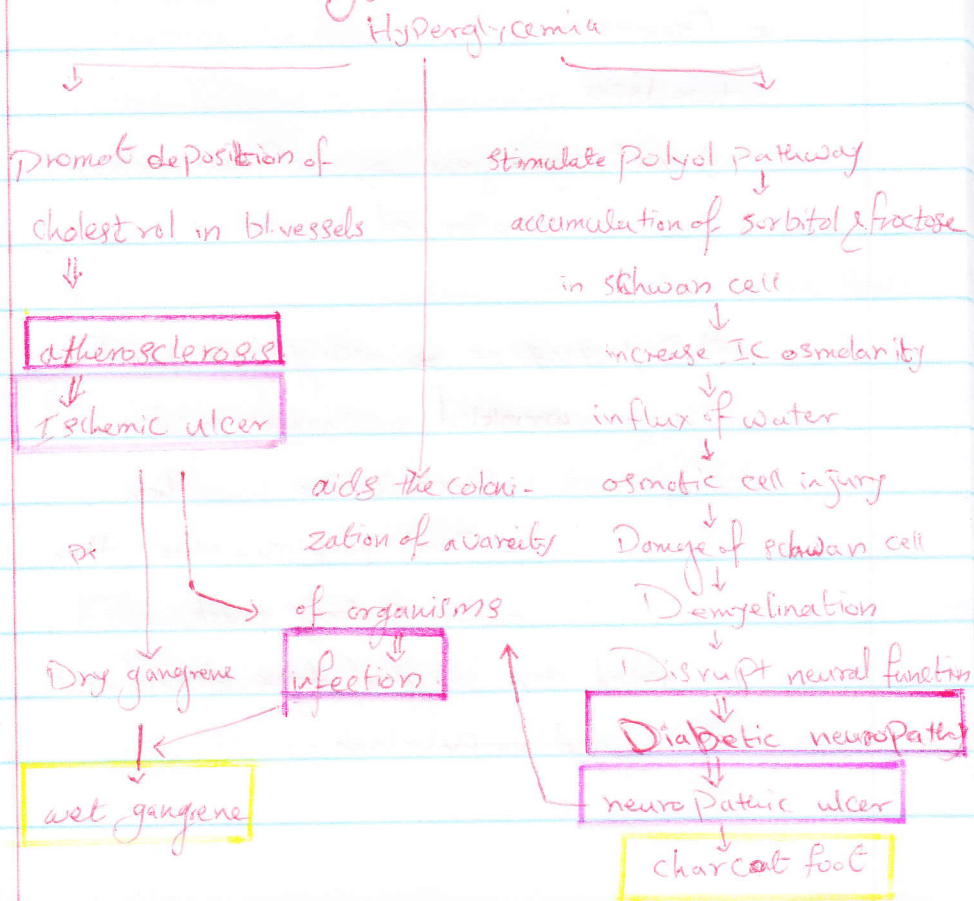 Hyperglycemia
promot deposition of
cholestrol in bl.vessels
atherosclerosis
Ischemic ulcer
Dry gangrene
wet gangrene
aids the coloni-
zation of avareity
of organisms
infection
stimulate polyol pathway
accumulation of sorbitol & fractose
in schwan cell
increase IC osmolarity
influx of water
osmotic cell injury
Damge of schwan cell
Demyelination
Disrupt neural function
Diabetic neuropathy
neuropathic ulcer
charcoat foot